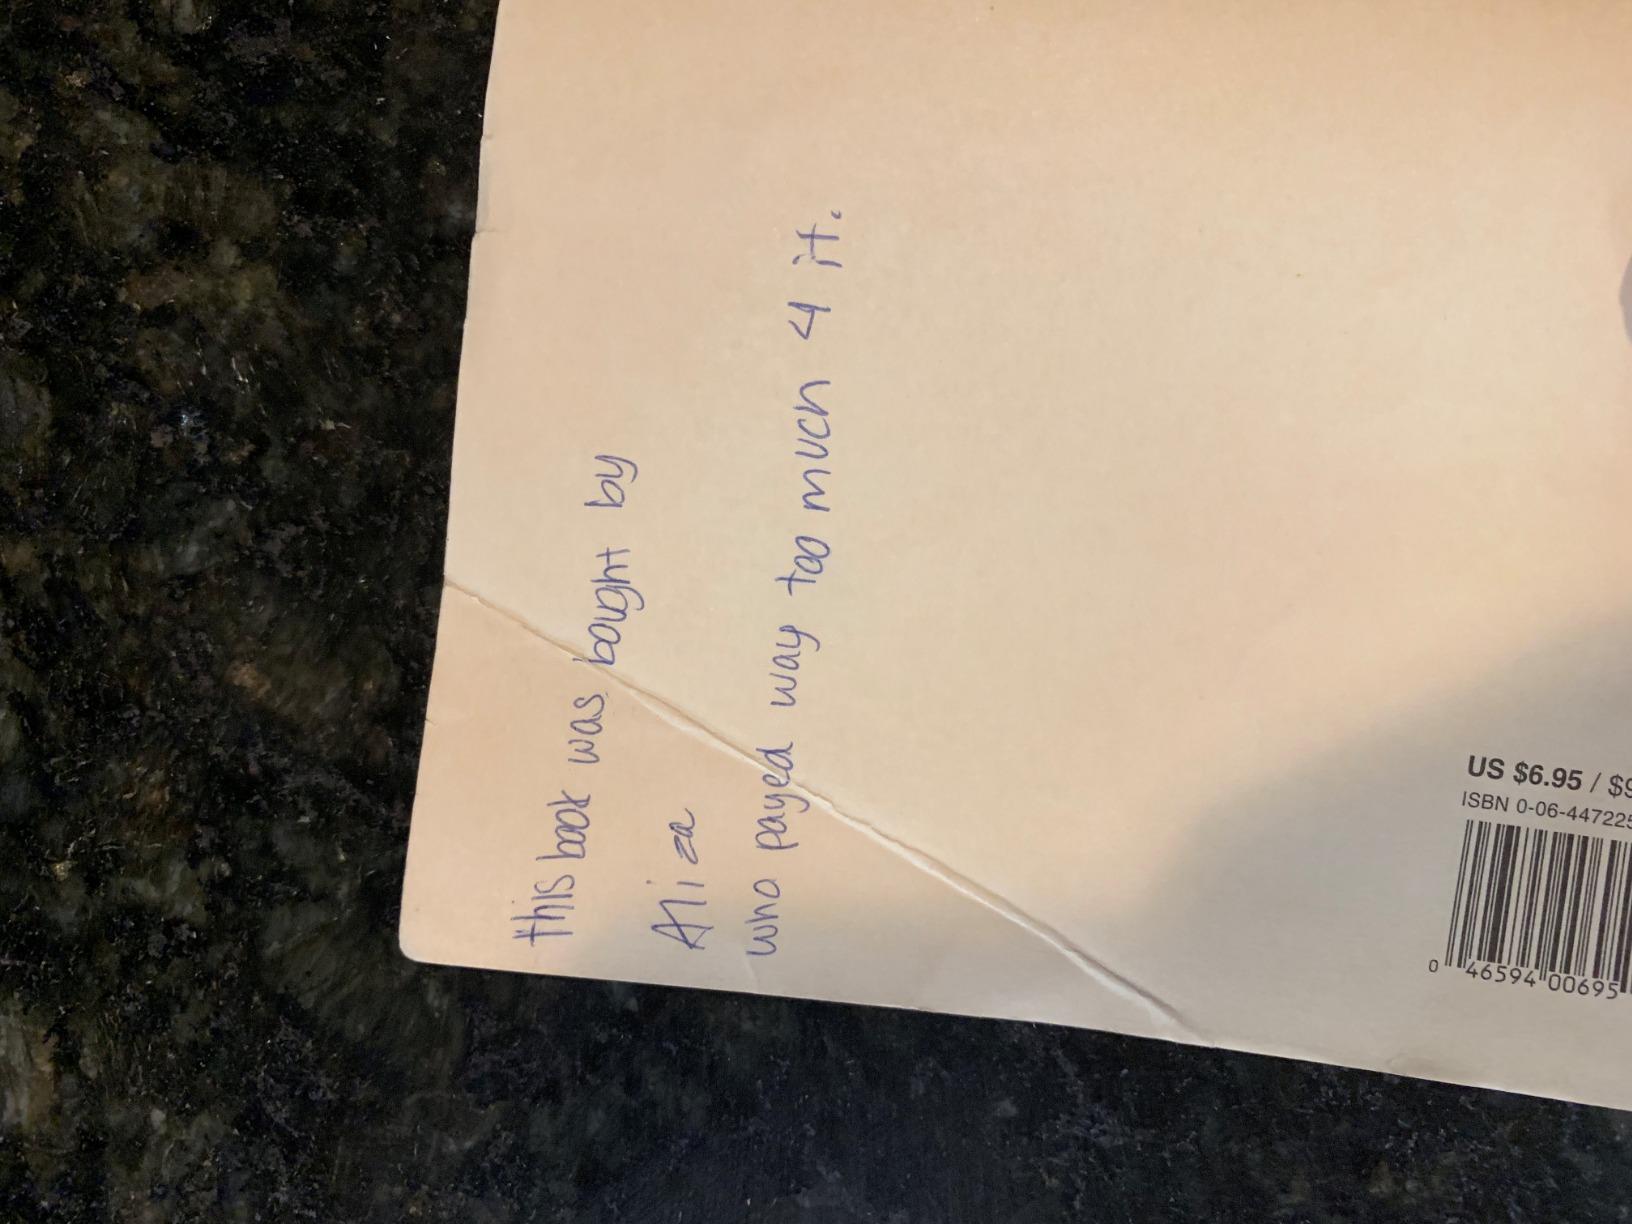 this book was bought by
Aliza
who payed way too much 4 it.
US $6.95 / $9
ISBN 0-06-447225
0 46594 00695